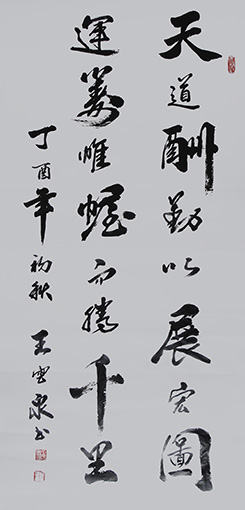 天道酬勤以展宏圖
運籌帷幄而勝千里
丁酉年初秋 王雲泉书